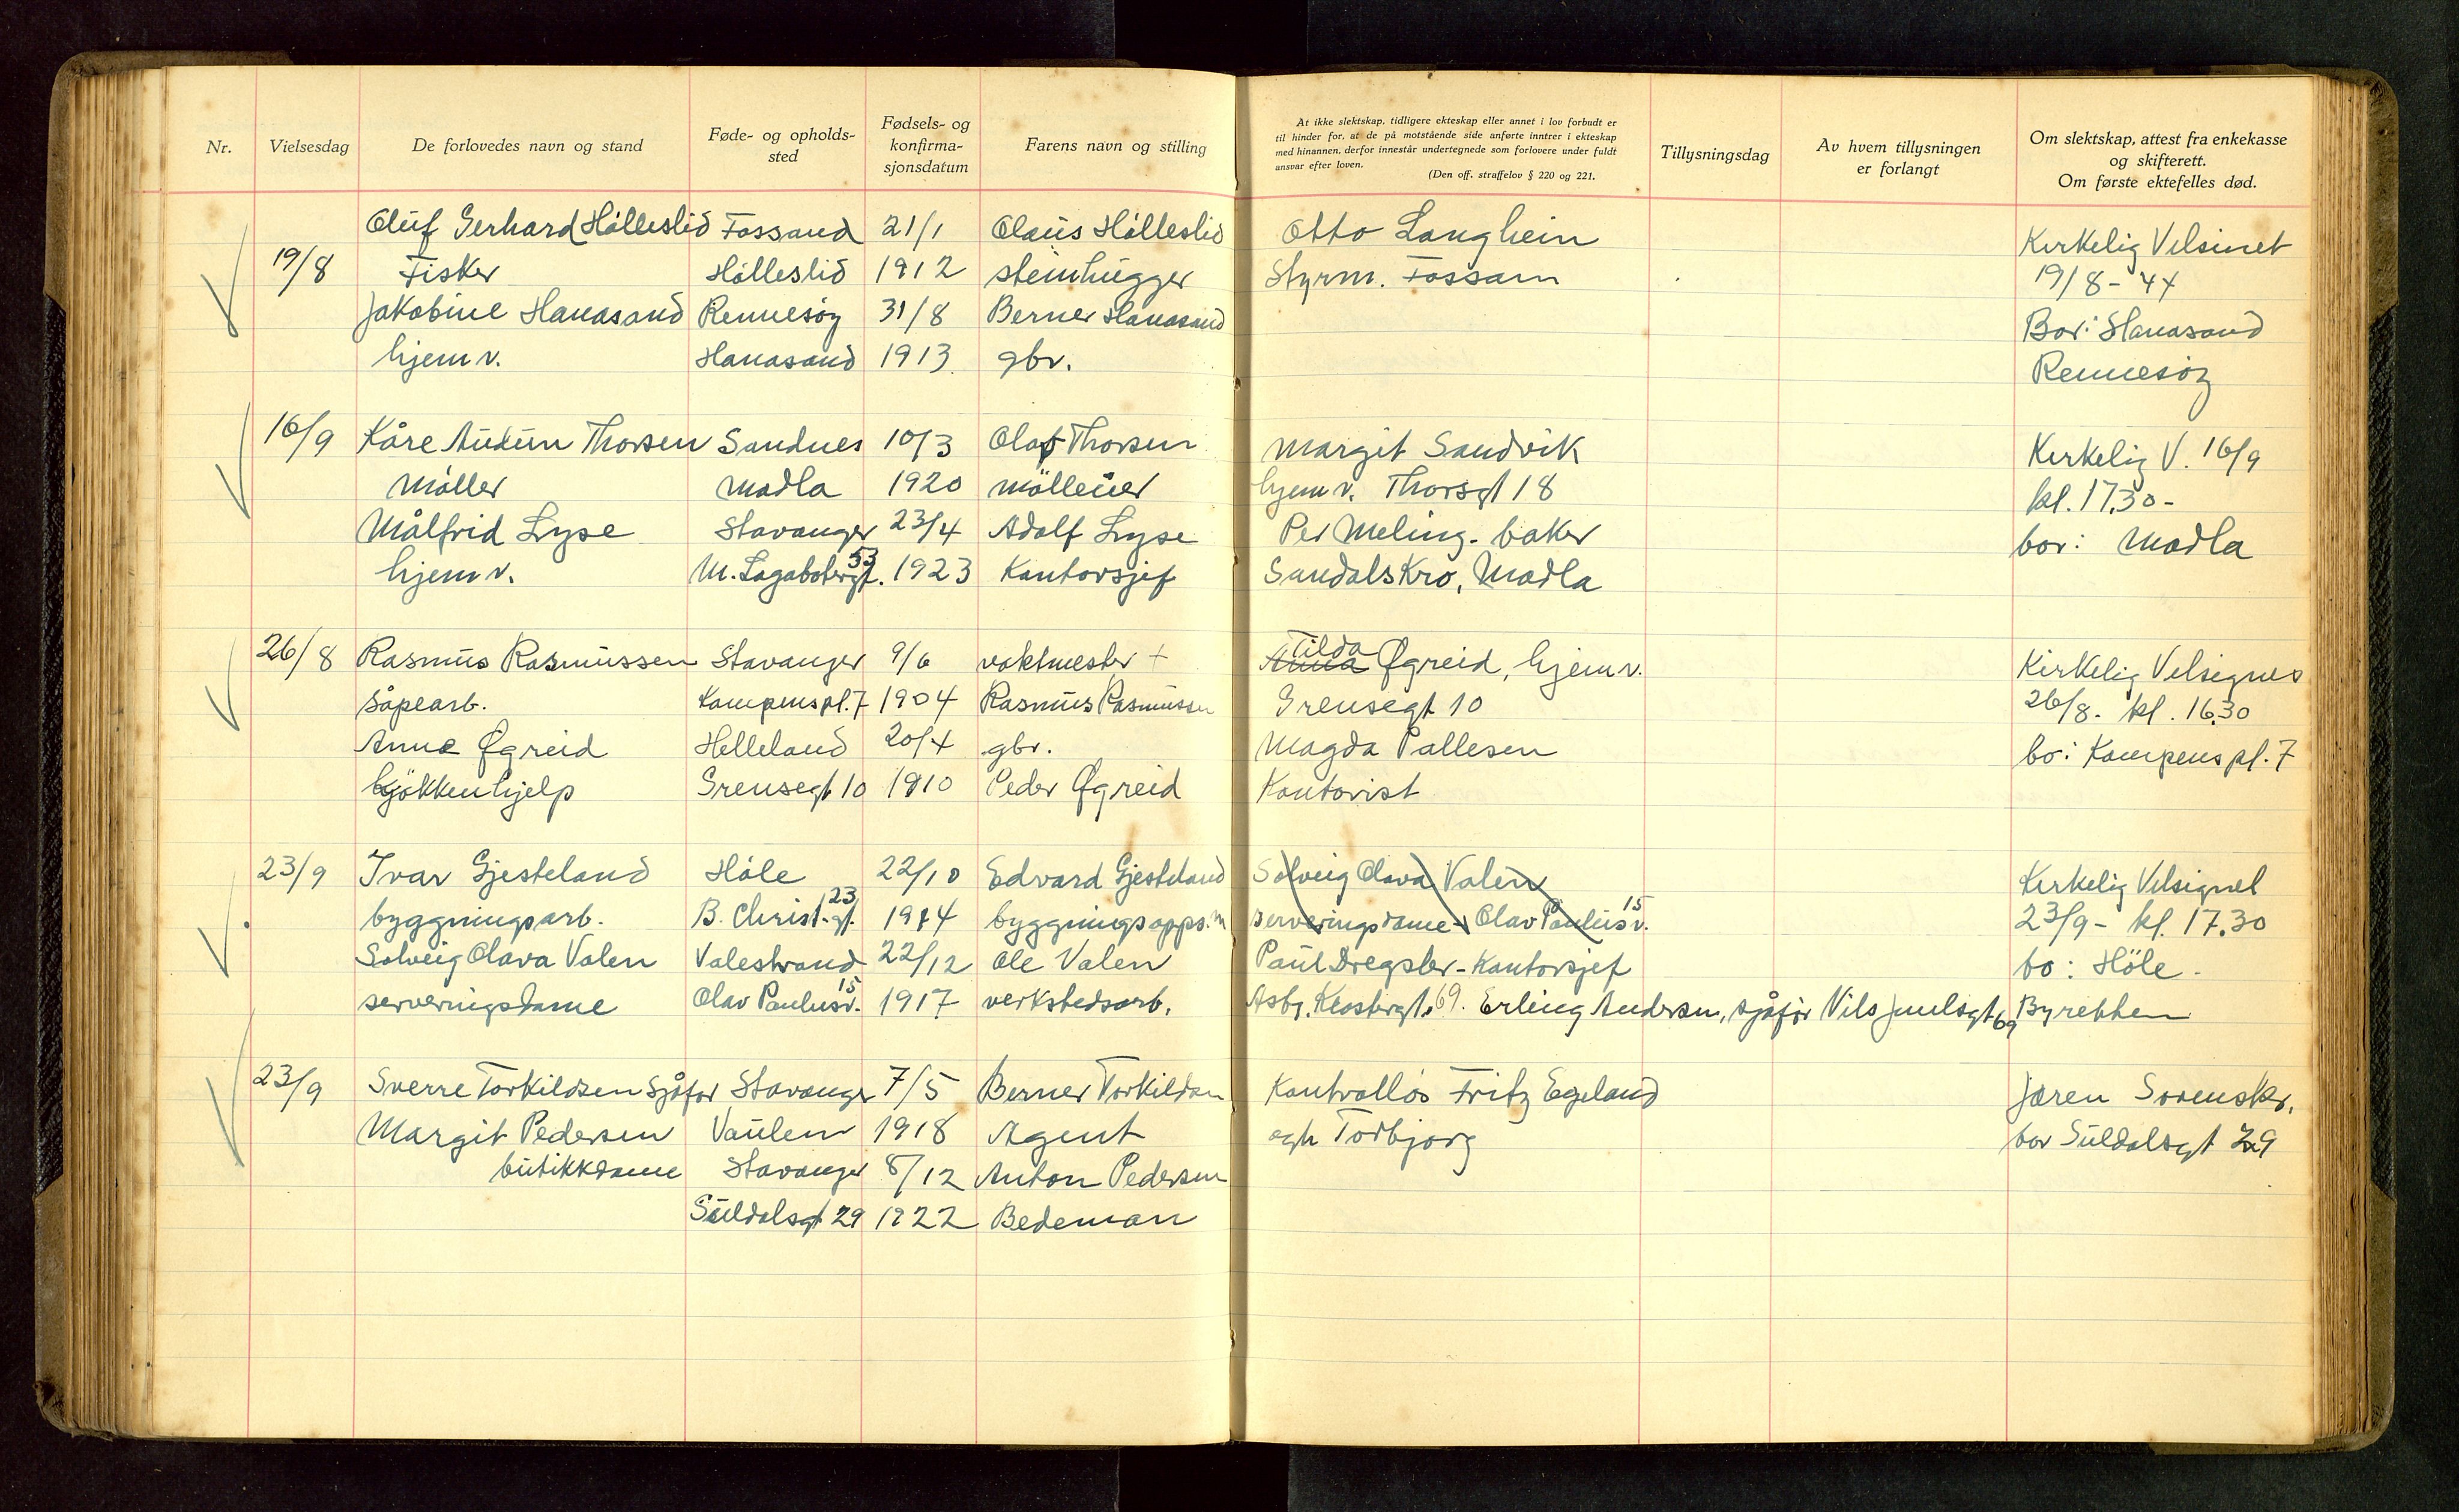 Nr.
Vielsesdag
De forlovedes navn og stand
Føde- og opholds-
sted
Fødsels- og
konfirma-
sjonsdatum
Farens navn og stilling
At ikke slektskap, tidligere ekteskap eller annet i lov forbudt er
til hinder for, at de på motstående side anførte inntrer i ekteskap
med hinannen, derfor innestår undertegnede som forlovere under fuldt
ansvar efter loven.
(Den off. straffelov § 220 og 221.
Tillysningsdag
Av hvem tillysningen
er forlangt
Om slektskap, attest fra enkekasse
og skifterett.
Om første ektefelles død.
Oluf Gerhard Hålleslid Fossand 21/1 Olaus Hålleslid Otto Langhein Kirkelig Velsinet
19/8 Fisker Hålleslid 1912 steinhugger Styrm. Fossam 19/8-44
Jakobine Hanasand Rennesöy 31/8 Berner Hanasand Bor: Hanasand
hjemv. Hanasand 1913 gbr. Rennesöy
16/9 Kåre Audun Thorsen Sandnes 10/3 Olaf Thorsen Margit Sandvik Kirkelig V. 16/9
Möller Madla 1920 mölleier hjemv. Thorsgt 18 kl. 17.30-
Målfrid Lyse Stavanger 23/4 Adolf Lyse Per Meling. baker bor: Madla
hjemv. M. Lagabötergt. 53 1923 Kontorsjef Sandalskro, Madla
26/8 Rasmus Rasmussen Stavanger 9/6 vaktmester + Anna Tilda Øgreid, hjemv. Kirkelig Velsignes
såpearb. Kampenspl. 7 1904 Rasmus Rasmussen Grensegt 10 26/8. kl. 16.30
Anna Øgreid Helleland 20/4 gbr. Magda Pallesen bo: Kampenspl. 7
kjökkenhjelp Grensegt 10 1910 Peder Øgreid Kontorist
23/9 Ivar Gjesteland Höle 22/10 Edvard Gjesteland Solveig Olava Valen Kirkelig Velsignel
byggningsarb. B. Christ.gt. 23 1914 byggningsopps.m serveringsdame - Olav Paulusv. 15 23/9 - kl. 17.30
Solveig Olava Valen Valestrand 22/12 Ole Valen Paul Dregsler - Kontorsjef bo: Höle -
serveringsdame Olav Paulusv. 15 1917 verkstedsarb. Asbj. Klostergt. 69. Erling Andersen, sjåför Nils Juulsgt 69 Byretten
23/9 Sverre Torkildsen Sjåfør Stavanger 7/5 Berner Torkildsen Kontrollös Fritz Egeland Jæren Sorenskr.
Margit Pedersen Vaulen 1918 Agent ogh Torbjorg bor Suldalsgt 29
butikkdame Stavanger 8/12 Anton Pedersen
Suldalsgt 29 1922 Bedeman